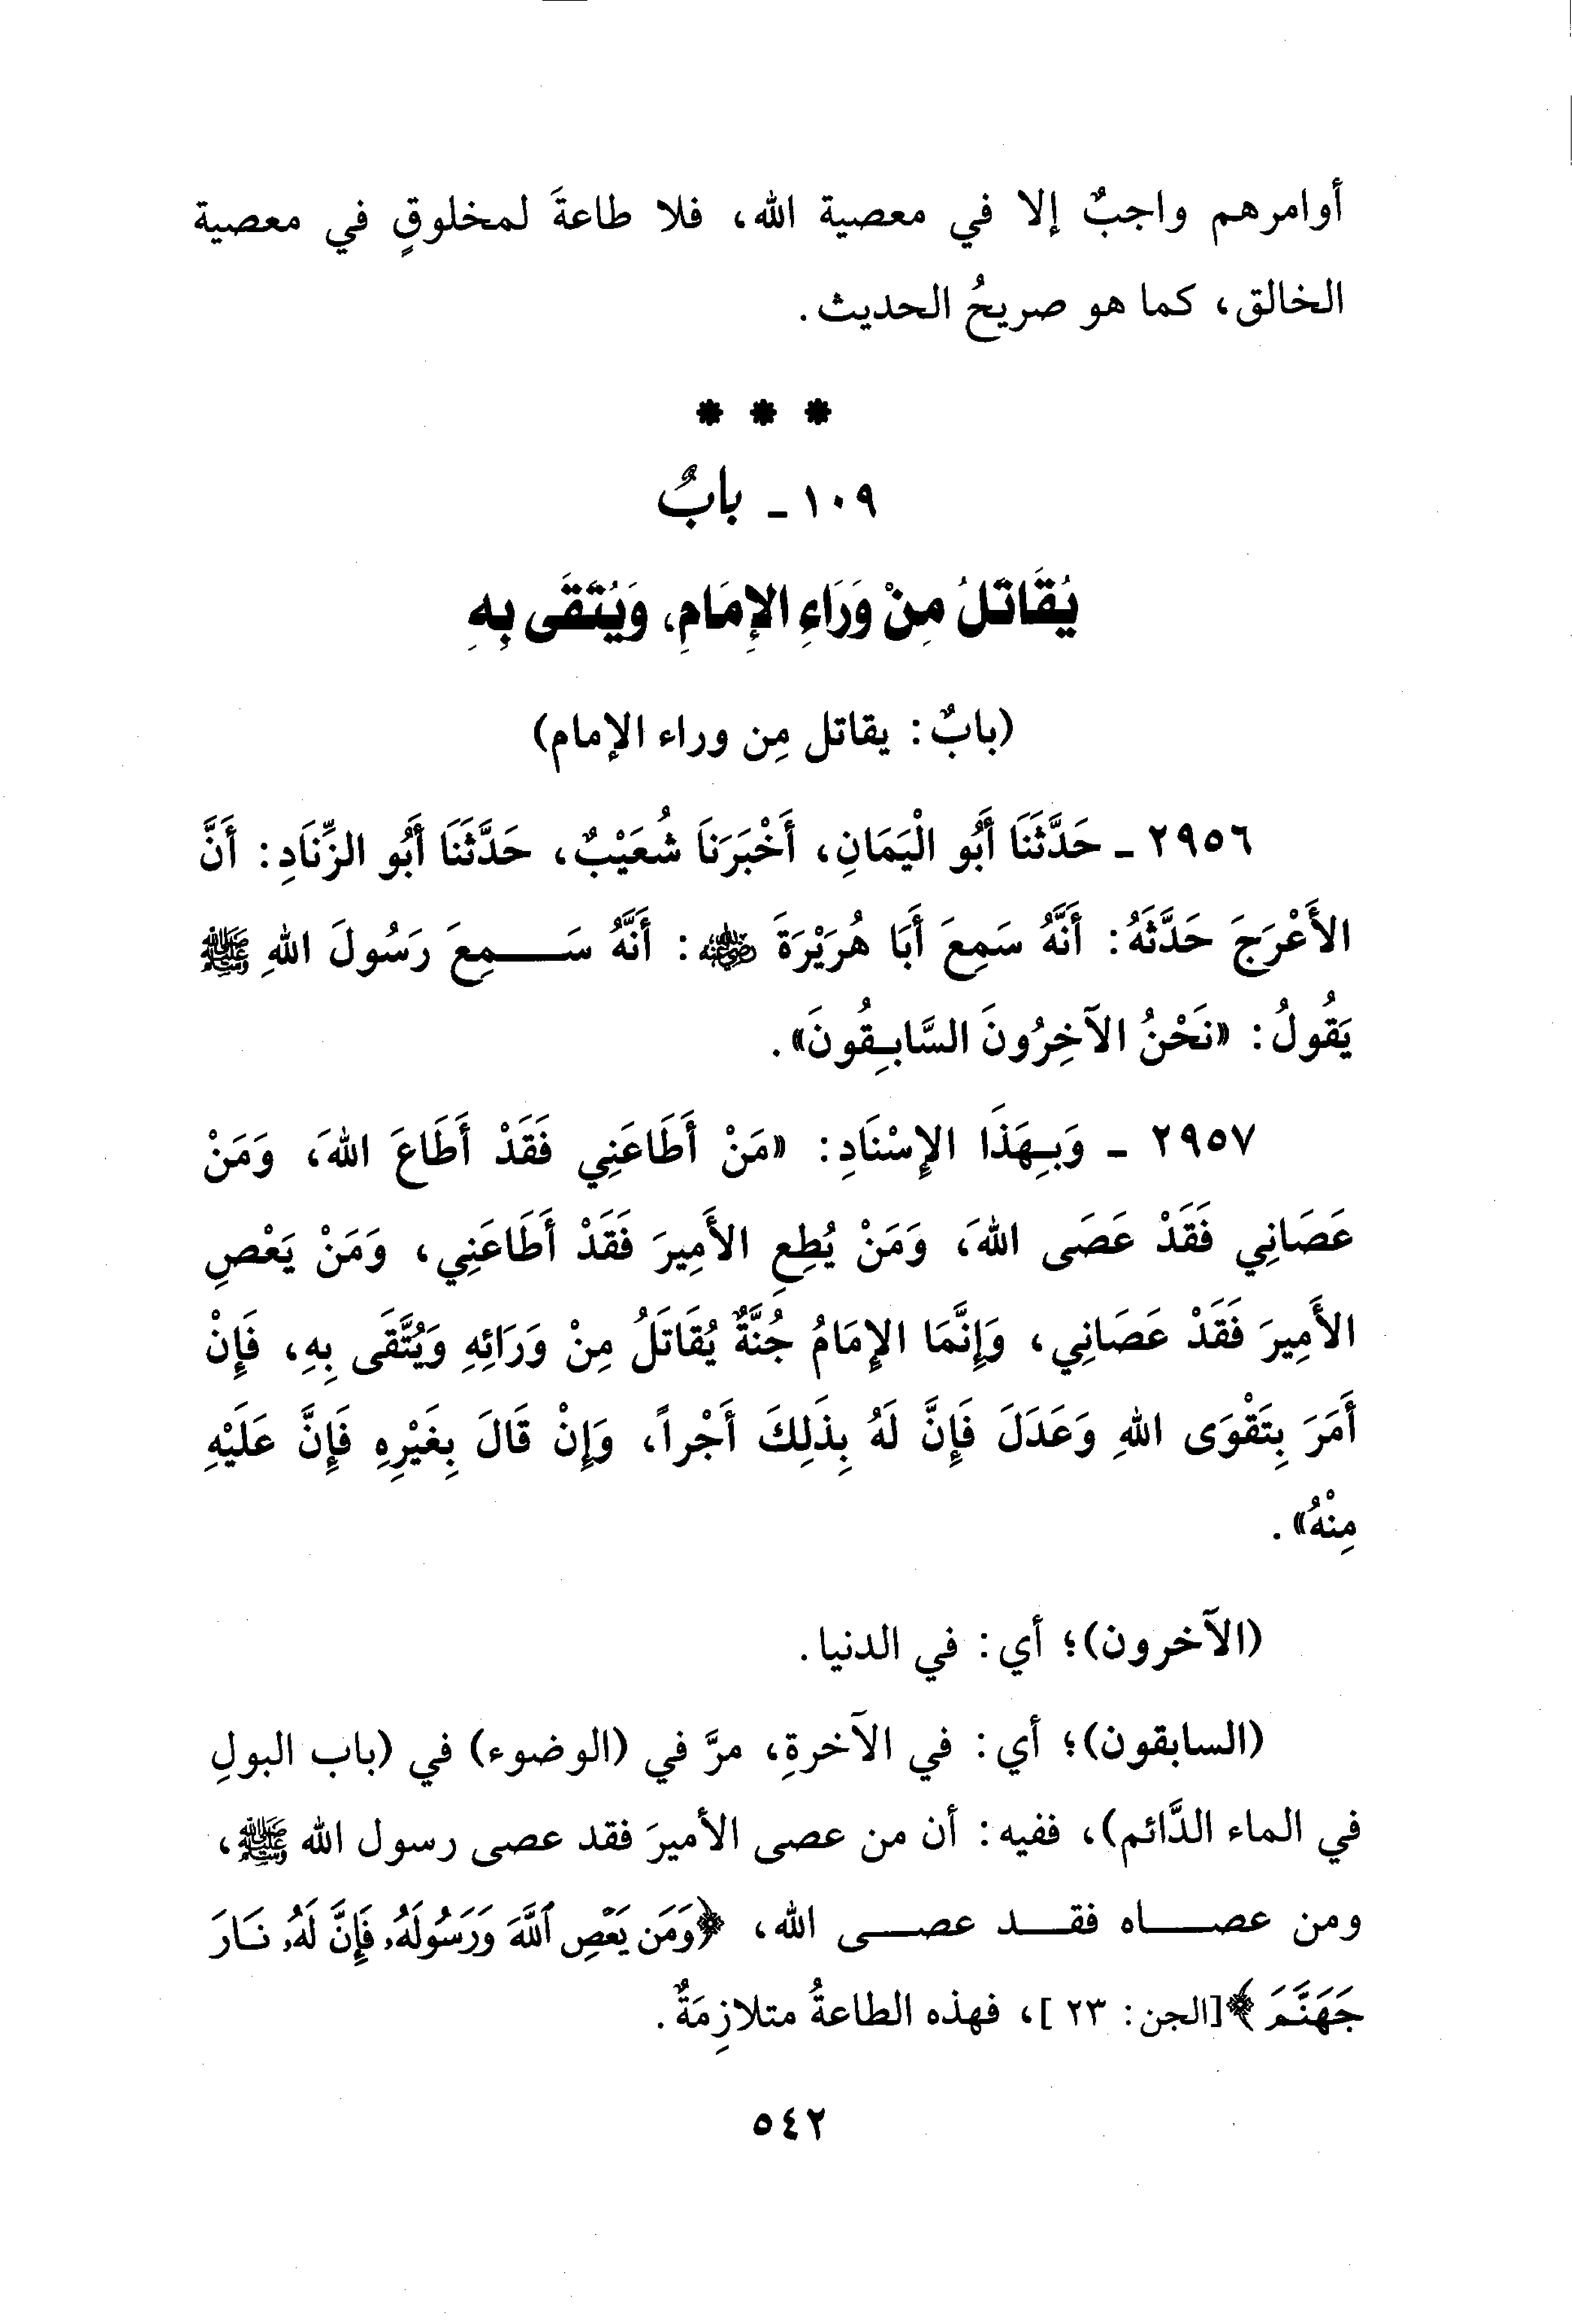 أوامرهم واجبٌ إلا في معصية الله، فلا طاعةَ لمخلوقٍ في معصية
الخالق، كما هو صريحُ الحديث.
* * *
١٠٩ - بابٌ
يُقَاتَلُ مِنْ وَرَاءِ الإِمَامِ، وَيُتَّقَى بِهِ
(بابٌ: يقاتل مِن وراء الإمام)
٢٩٥٦ - حَدَّثَنَا أَبُو الْيَمَانِ، أَخْبَرَنَا شُعَيْبٌ، حَدَّثَنَا أَبُو الزِّنَادِ: أَنَّ
الأَعْرَجَ حَدَّثَهُ: أَنَّهُ سَمِعَ أَبَا هُرَيْرَةَ رضي الله عنه: أَنَّهُ سَـــمِعَ رَسُولَ اللهِ ﷺ
يَقُولُ: «نَحْنُ الآخِرُونَ السَّابِقُونَ».
٢٩٥٧ - وَبِهَذَا الإِسْنَادِ: «مَنْ أَطَاعَنِي فَقَدْ أَطَاعَ اللهَ، وَمَنْ
عَصَانِي فَقَدْ عَصَى اللهَ، وَمَنْ يُطِعِ الأَمِيرَ فَقَدْ أَطَاعَنِي، وَمَنْ يَعْصِ
الأَمِيرَ فَقَدْ عَصَانِي، وَإِنَّمَا الإِمَامُ جُنَّةٌ يُقَاتَلُ مِنْ وَرَائِهِ وَيُتَّقَى بِهِ، فَإِنْ
أَمَرَ بِتَقْوَى اللهِ وَعَدَلَ فَإِنَّ لَهُ بِذَلِكَ أَجْراً، وَإِنْ قَالَ بِغَيْرِهِ فَإِنَّ عَلَيْهِ
مِنْهُ».
(الآخرون)؛ أي: في الدنيا.
(السابقون)؛ أي: في الآخرةِ، مرَّ في (الوضوء) في (باب البولِ
في الماء الدَّائم)، ففيه: أن من عصى الأميرَ فقد عصى رسول الله ﷺ،
ومن عصـــاه فقـــد عصـــى الله، ﴿وَمَن يَعْصِ ٱللَّهَ وَرَسُولَهُۥ فَإِنَّ لَهُۥ نَارَ
جَهَنَّمَ﴾ [الجن: ٢٣]، فهذه الطاعةُ متلازِمَةٌ.
٥٤٢